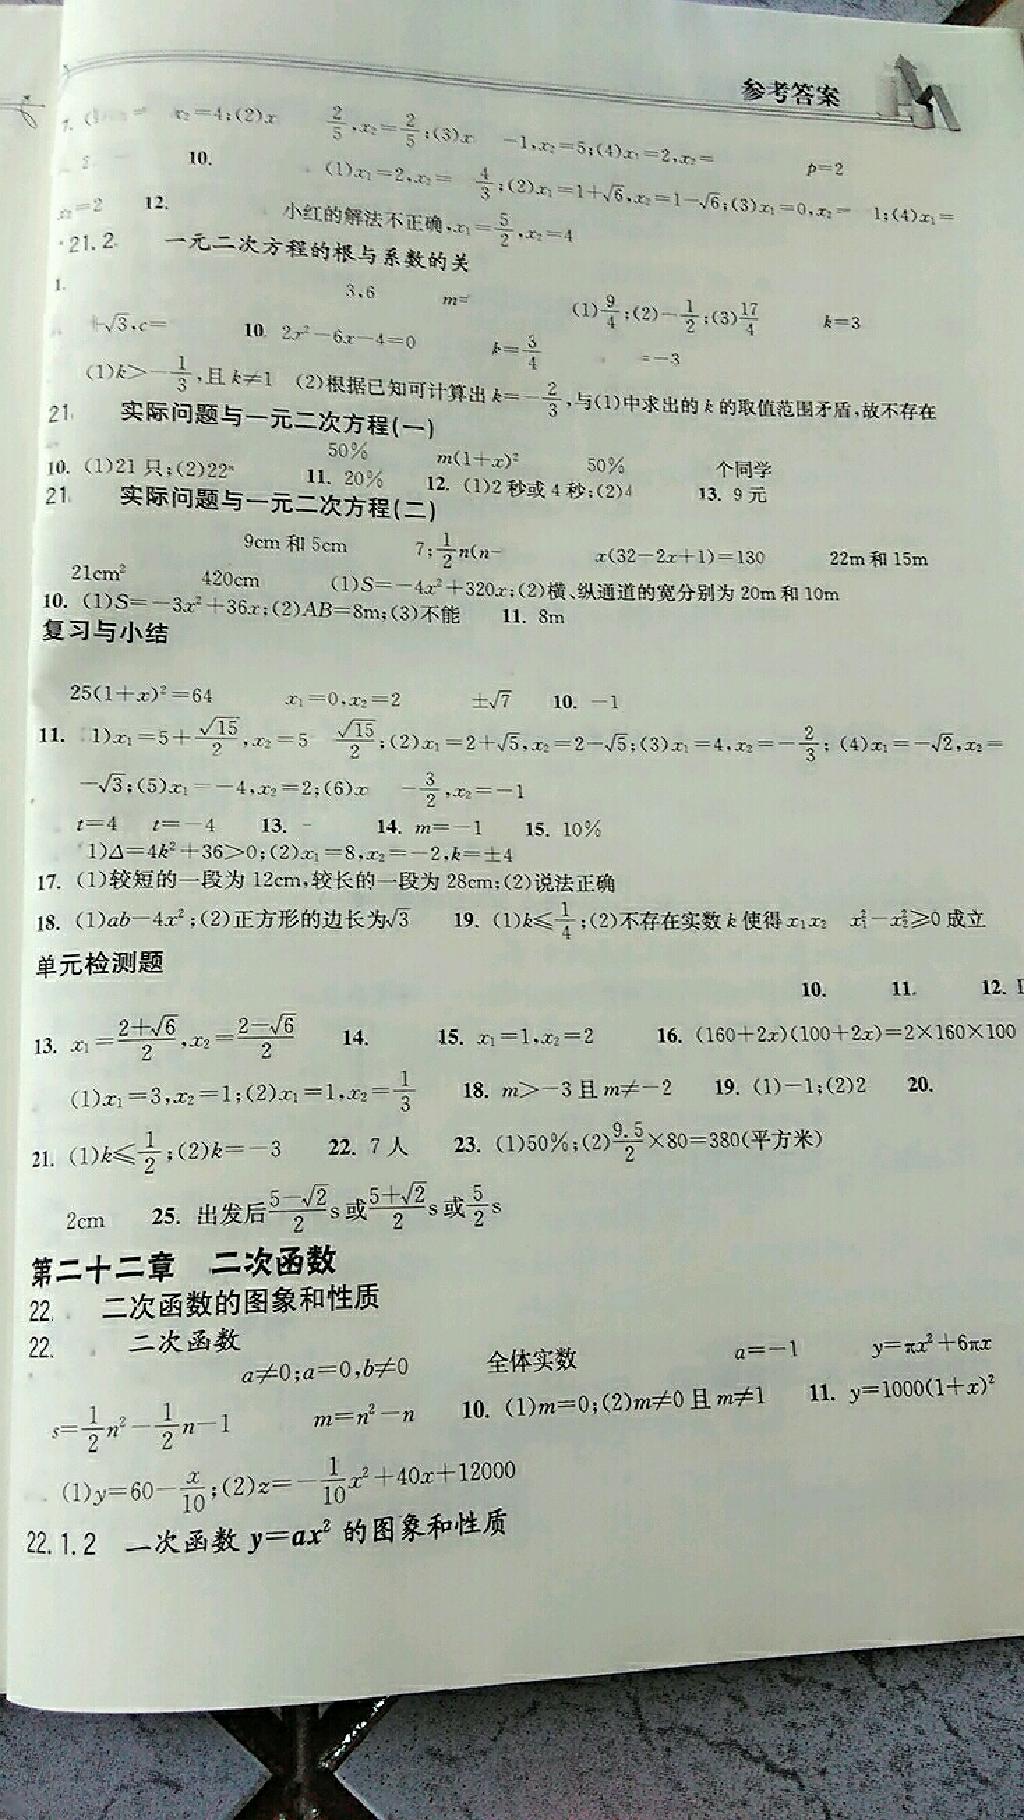 参考答案
7. x₂=4;(2)x 2/5,x₂=2/5;(3)x -1,x₂=5;(4)x₁=2,x₂= p=2
10. (1)x₁=2,x₂= 4/3;(2)x₁=1+√6,x₂=1-√6;(3)x₁=0,x₂= 1;(4)x₁=
x₂=2 12. 小红的解法不正确,x₁=5/2,x₂=4
21.2 一元二次方程的根与系数的关
1. 3,6 m= (1)9/4;(2)-1/2;(3)17/4 k=3
+√3,c= 10. 2x²-6x-4=0 k=3/4 =-3
(1)k>-1/3,且k≠1 (2)根据已知可计算出k=-2/3,与(1)中求出的k的取值范围矛盾,故不存在
21. 实际问题与一元二次方程(一)
50% m(1+x)² 50% 个同学
10. (1)21只;(2)22ⁿ 11. 20% 12. (1)2秒或4秒;(2)4 13. 9元
21. 实际问题与一元二次方程(二)
9cm和5cm 7;1/2n(n- x(32-2x+1)=130 22m和15m
21cm² 420cm (1)S=-4x²+320x;(2)横、纵通道的宽分别为20m和10m
10. (1)S=-3x²+36x;(2)AB=8m;(3)不能 11. 8m
复习与小结
25(1+x)²=64 x₁=0,x₂=2 ±√7 10. -1
11. 1)x₁=5+√15/2,x₂=5 √15/2;(2)x₁=2+√5,x₂=2-√5;(3)x₁=4,x₂=-2/3; (4)x₁=-√2,x₂=
-√3;(5)x₁=-4,x₂=2;(6)x -3/2,x₂=-1
t=4 t=-4 13. - 14. m=-1 15. 10%
1)Δ=4k²+36>0;(2)x₁=8,x₂=-2,k=±4
17. (1)较短的一段为12cm,较长的一段为28cm;(2)说法正确
18. (1)ab-4x²;(2)正方形的边长为√3 19. (1)k≤1/4;(2)不存在实数k使得x₁x₂ x₁²-x₂²≥0成立
单元检测题
10. 11. 12.
13. x₁=(2+√6)/2,x₂=(2-√6)/2 14. 15. x₁=1,x₂=2 16. (160+2x)(100+2x)=2×160×100
(1)x₁=3,x₂=1;(2)x₁=1,x₂=1/3 18. m>-3且m≠-2 19. (1)-1;(2)2 20.
21. (1)k≤1/2;(2)k=-3 22. 7人 23. (1)50%;(2)9.5/2×80=380(平方米)
2cm 25. 出发后(5-√2)/2s或(5+√2)/2s或5/2s
第二十二章 二次函数
22. 二次函数的图象和性质
22. 二次函数
a≠0;a=0,b≠0 全体实数 a=-1 y=πx²+6πx
s=1/2n²-1/2n-1 m=n²-n 10. (1)m=0;(2)m≠0且m≠1 11. y=1000(1+x)²
(1)y=60-x/10;(2)z=-1/10x²+40x+12000
22.1.2 二次函数y=ax²的图象和性质